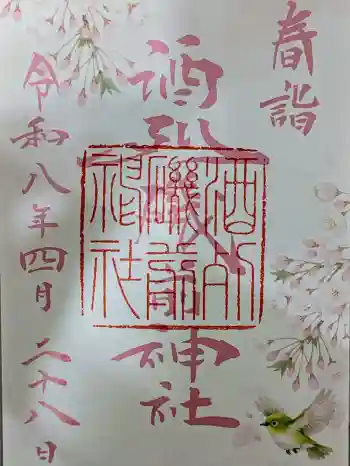 春詣
酒列磯前神社
酒列
磯前
神社
令和八年四月二十八日